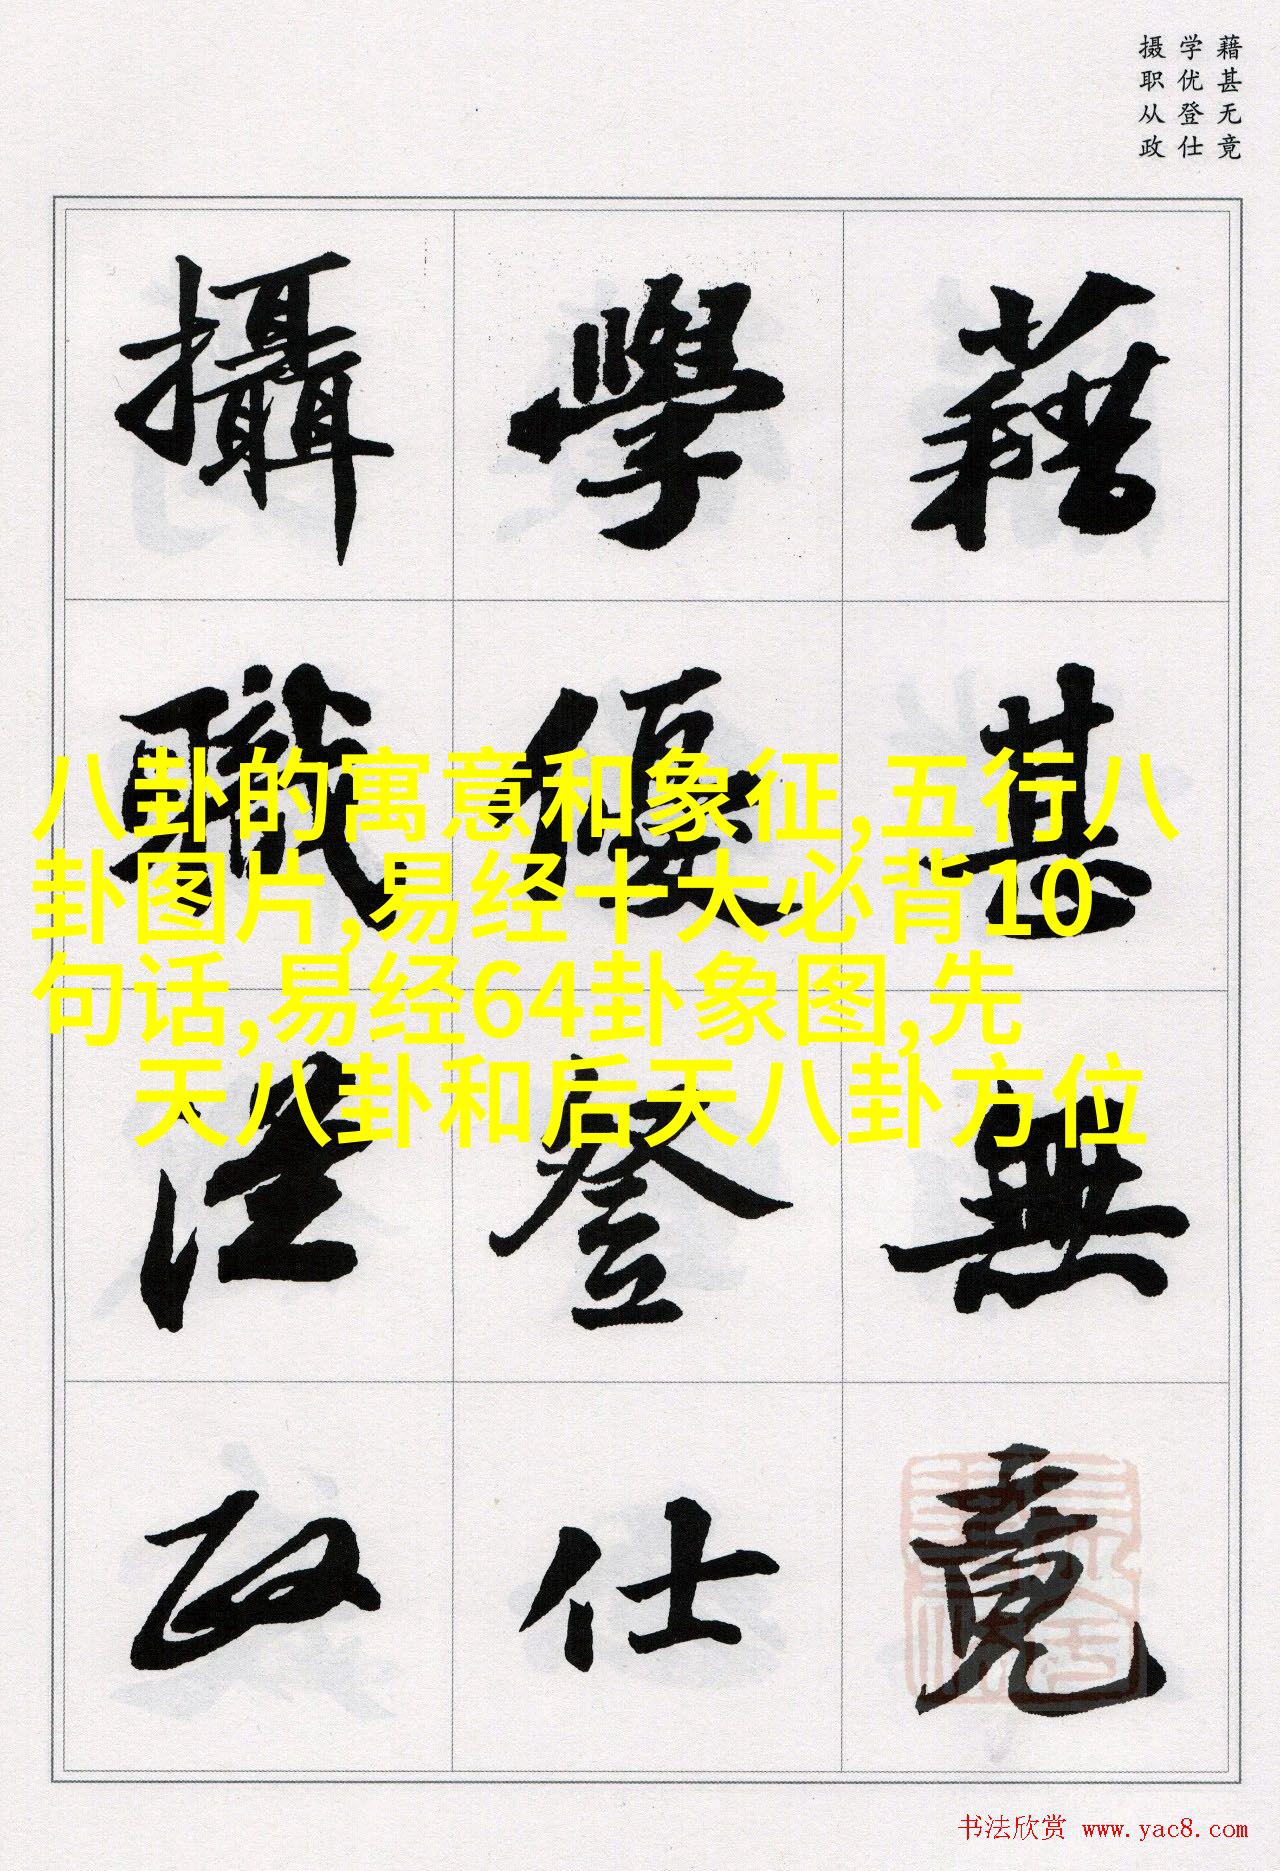 藉甚无竟
学优登仕
摄职从政
藉甚無竟
學優登仕
攝職從政
八卦的寓意和象征,五行八
卦图片,易经十大必背10
句话,易经64卦象图,先
天八卦和后天八卦方位
书法欣赏 www.yac8.com